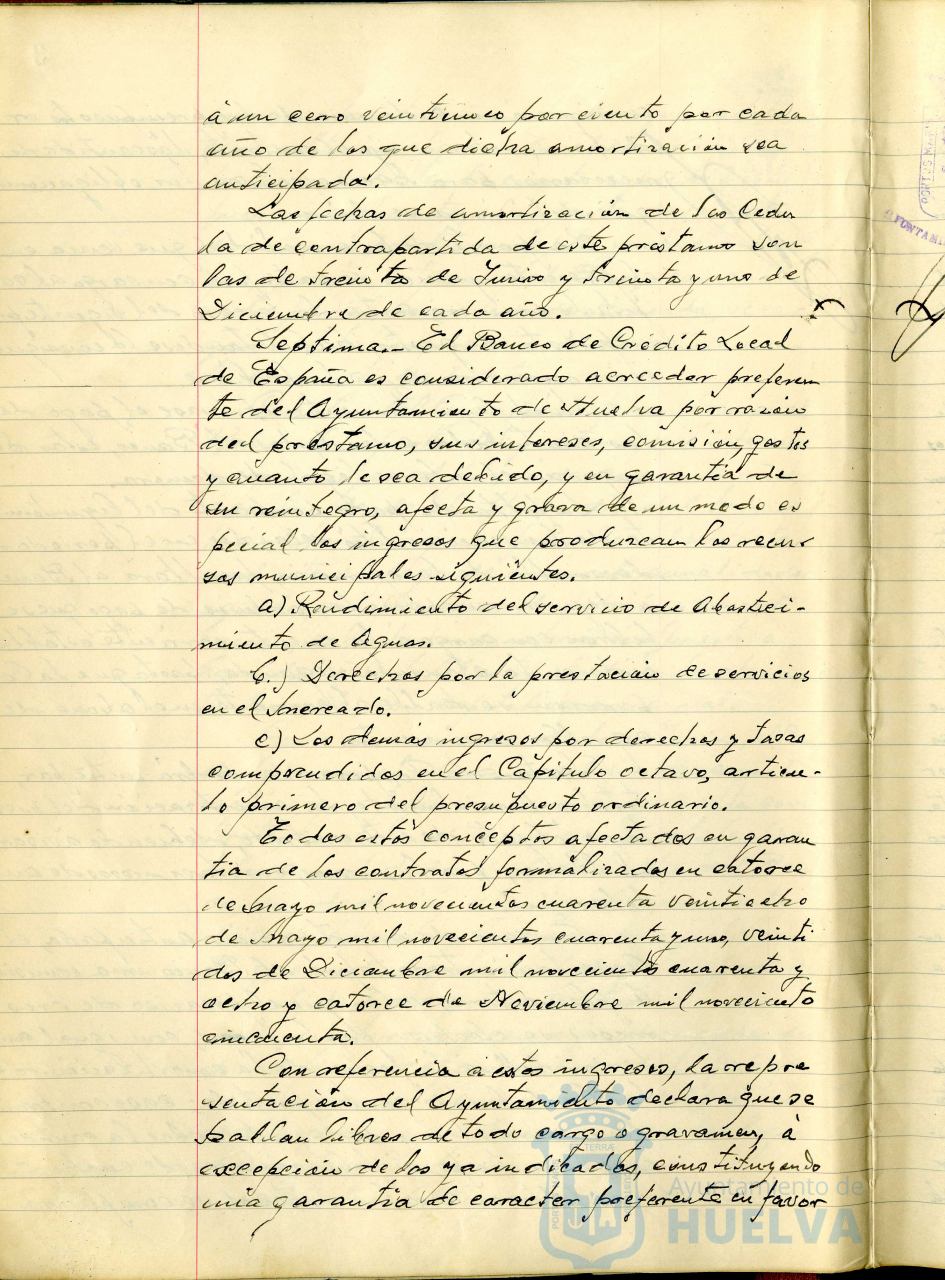 á un cero veinticinco por ciento por cada
año de los que dicha amortización sea
anticipada.
Las fechas de amortización de las Cedu
la de contrapartida de este préstamo son
las de treinta de Junio y treinta y uno de
Diciembre de cada año.
Septima.- El Banco de Crédito Local
de España es considerado acreedor preferen
te del Ayuntamiento de Huelva por razón
del préstamo, sus intereses, comisión, gastos
y cuanto le sea debido, y en garantía de
su reintegro, afecta y grava de un modo es
pecial los ingresos que produzcan los recur
sos municipales siguientes.
a) Rendimiento del servicio de Abasteci-
miento de Aguas.
b.) Derechos por la prestación de servicios
en el Mercado.
c) Los demás ingresos por derechos y tasas
comprendidos en el Capítulo octavo, artícu-
lo primero del presupuesto ordinario.
Todos estos conceptos afectados en garan
tia de los contratos formalizados en catorce
de Mayo mil novecientos cuarenta veintiocho
de Mayo mil novecientos cuarenta y uno, veinti
dos de Diciembre mil novecientos cuarenta y
ocho y catorce de Noviembre mil noveciento
cincuenta.
Con referencia a estos ingresos, la repre
sentación del Ayuntamiento declara que se
hallan libres de todo cargo o gravamen, á
excepción de los ya indicados, constituyendo
una garantía de caracter preferente en favor
Ayuntamiento de
HUELVA